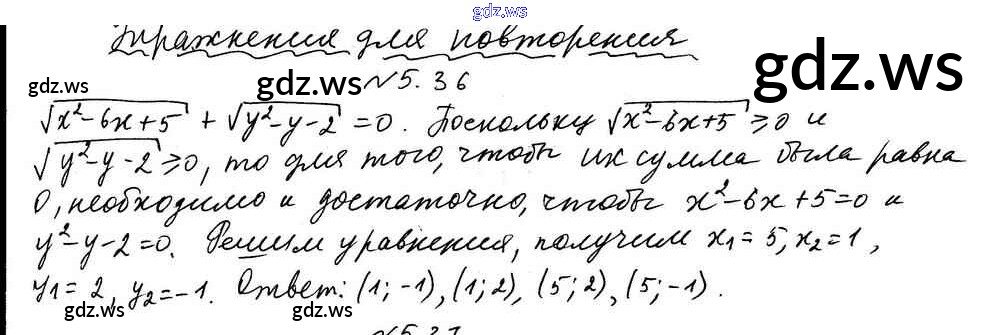 gdz.ws
Упражнения для повторения
gdz.ws gdz.ws №5.36 gdz.ws
√x²-6x+5 + √y²-y-2 = 0. Поскольку √x²-6x+5 ≥ 0 и
√y²-y-2 ≥ 0, то для того, чтобы их сумма была равна
0, необходимо и достаточно, чтобы x²-6x+5=0 и
y²-y-2=0. Решим уравнения, получим x₁=5, x₂=1,
y₁=2, y₂=-1. Ответ: (1;-1), (1;2), (5;2), (5;-1).
gdz.ws gdz.ws gdz.ws
№5.37